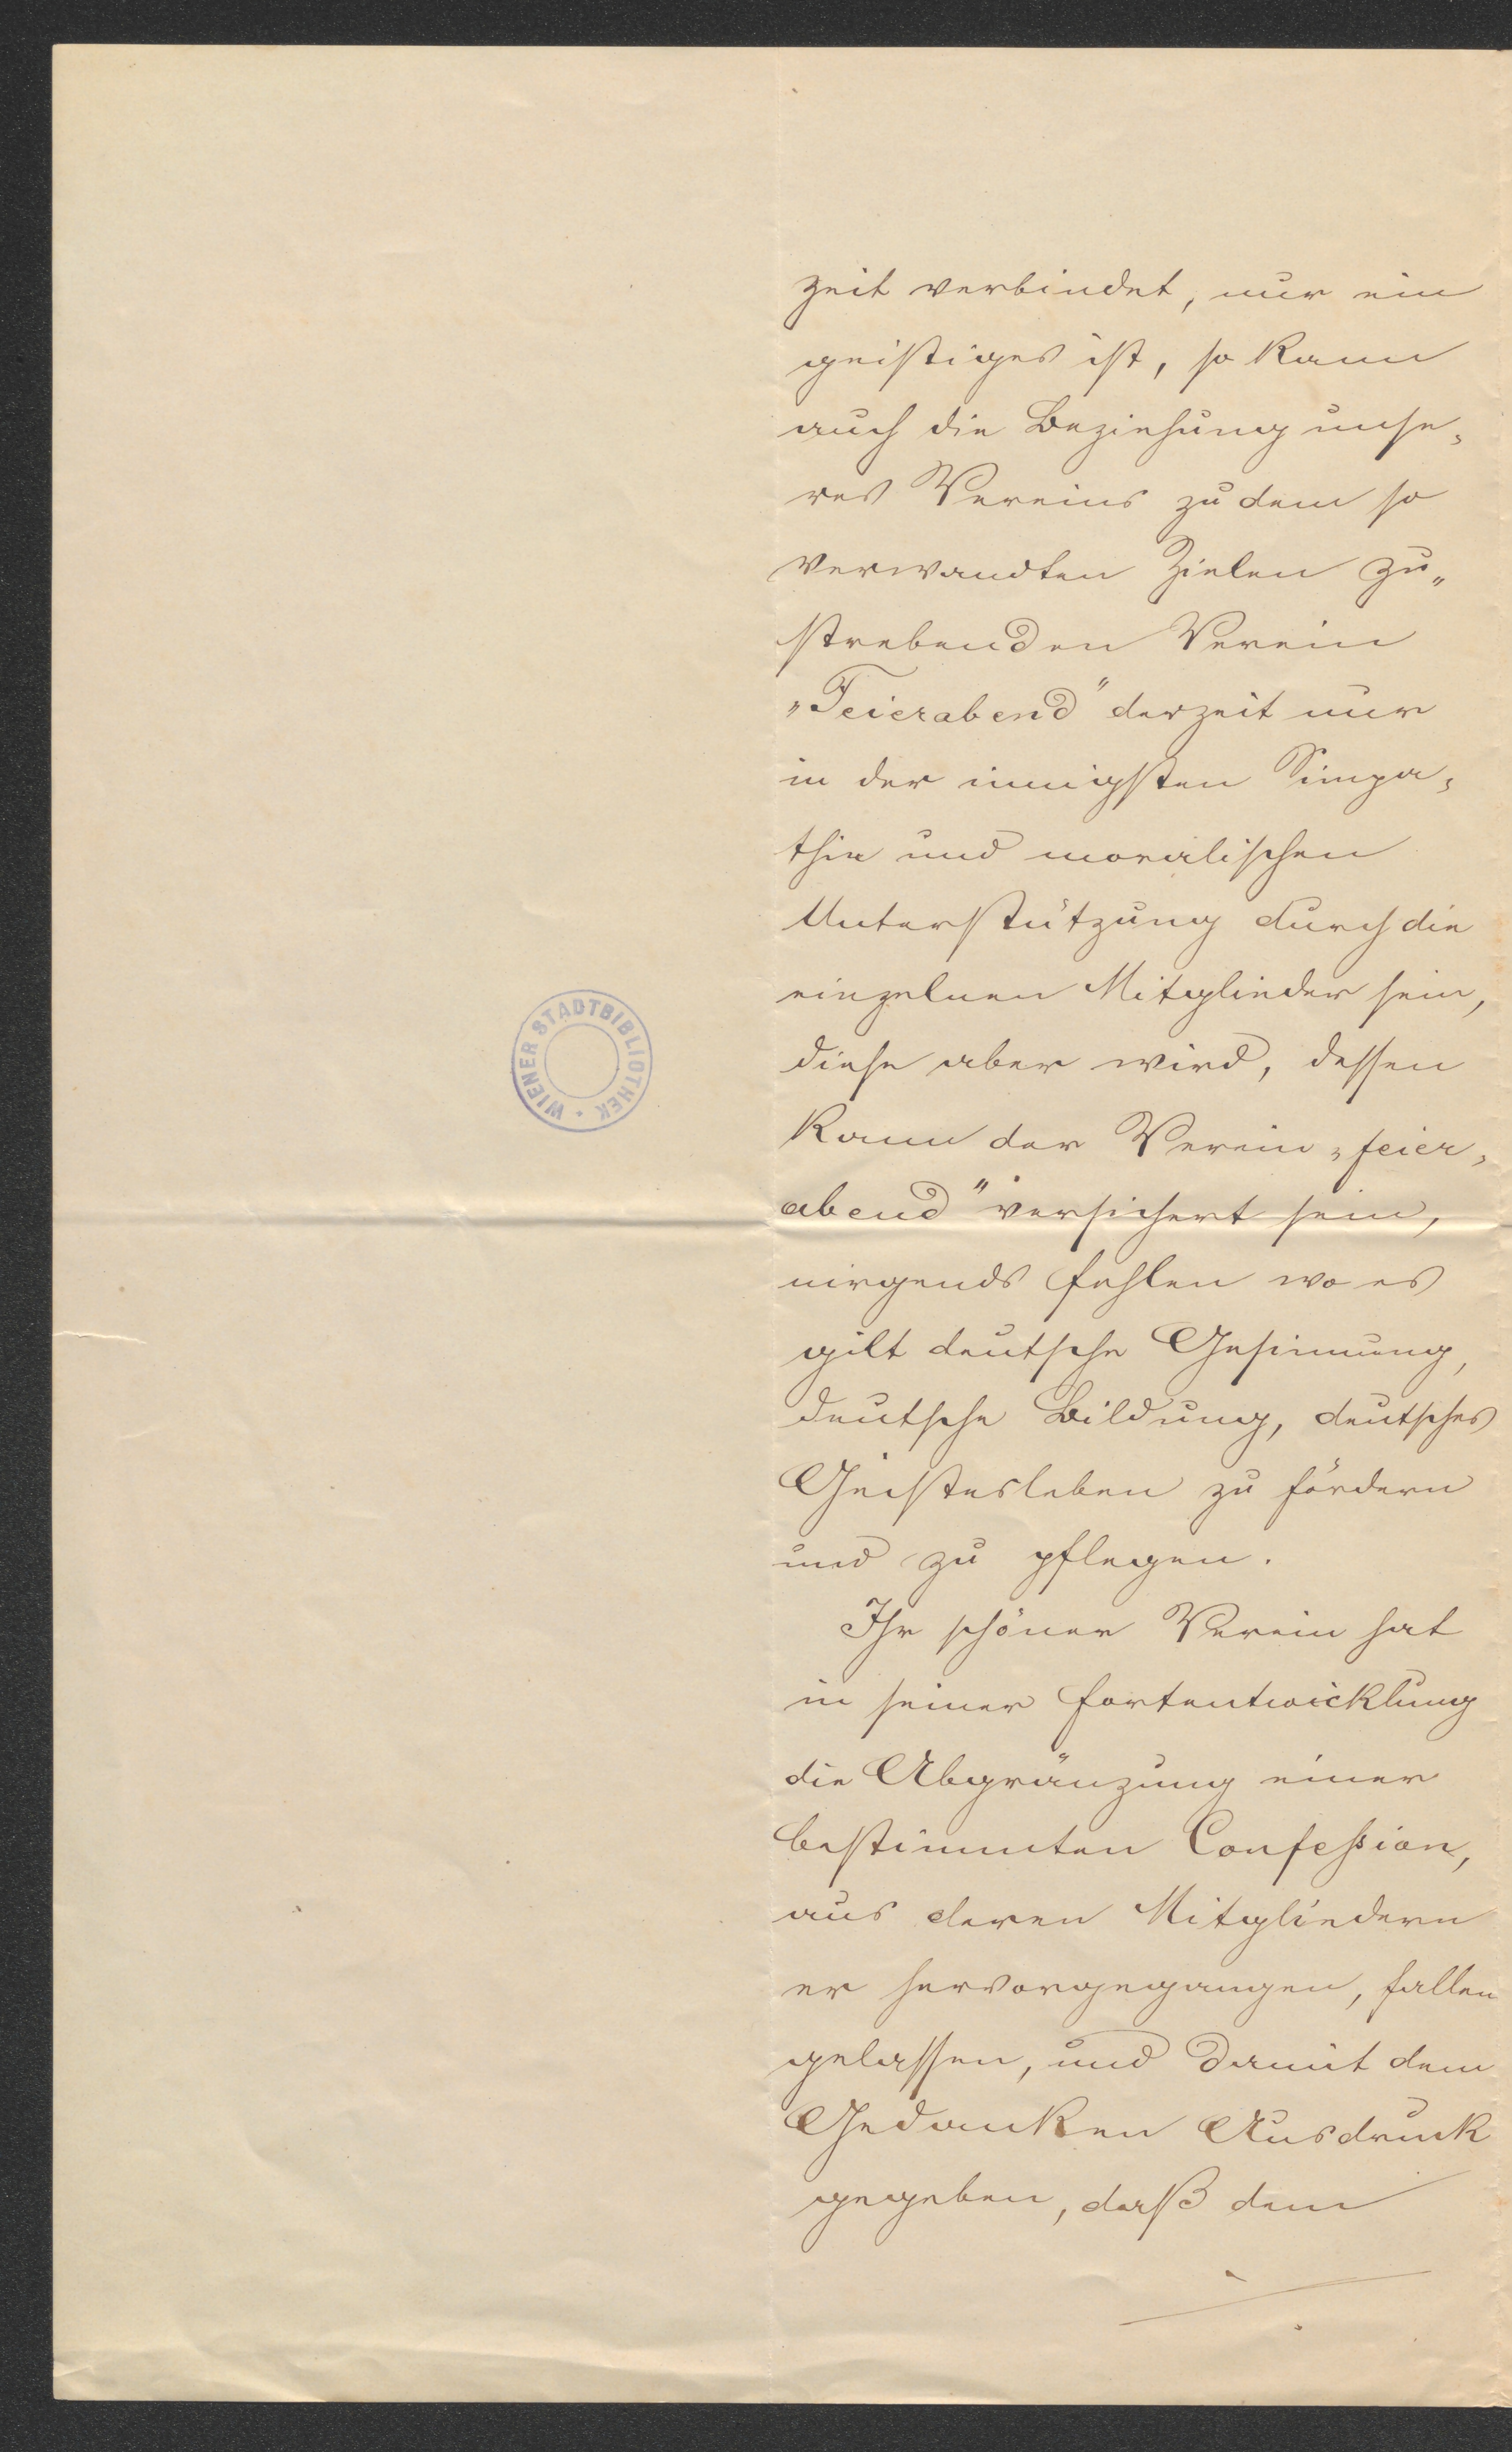 zeit verbindet, nur ein
geistiges ist, so kann
auch die Beziehung unse=
res Vereins zu dem so
verwandten Zielen zu=
strebenden Verein
„Feierabend" derzeit nur
in der innigsten Simpa=
thie und moralischen
Unterstützung durch die
einzelnen Mitglieder sein,
diese aber wird, dessen
kann der Verein „Feier=
abend" versichert sein,
nirgends fehlen wo es
gilt deutsche Gesinnung,
deutsche Bildung, deutsches
Geistesleben zu fördern
und zu pflegen.
Ihr schöner Verein hat
in seiner Fortentwicklung
die Abgränzung einer
bestimmten Confeßion,
aus deren Mitgliedern
er hervorgegangen, fallen
gelassen, und damit dem
Gedanken Ausdruck
gegeben, daß dem
WIENER STADTBIBLIOTHEK